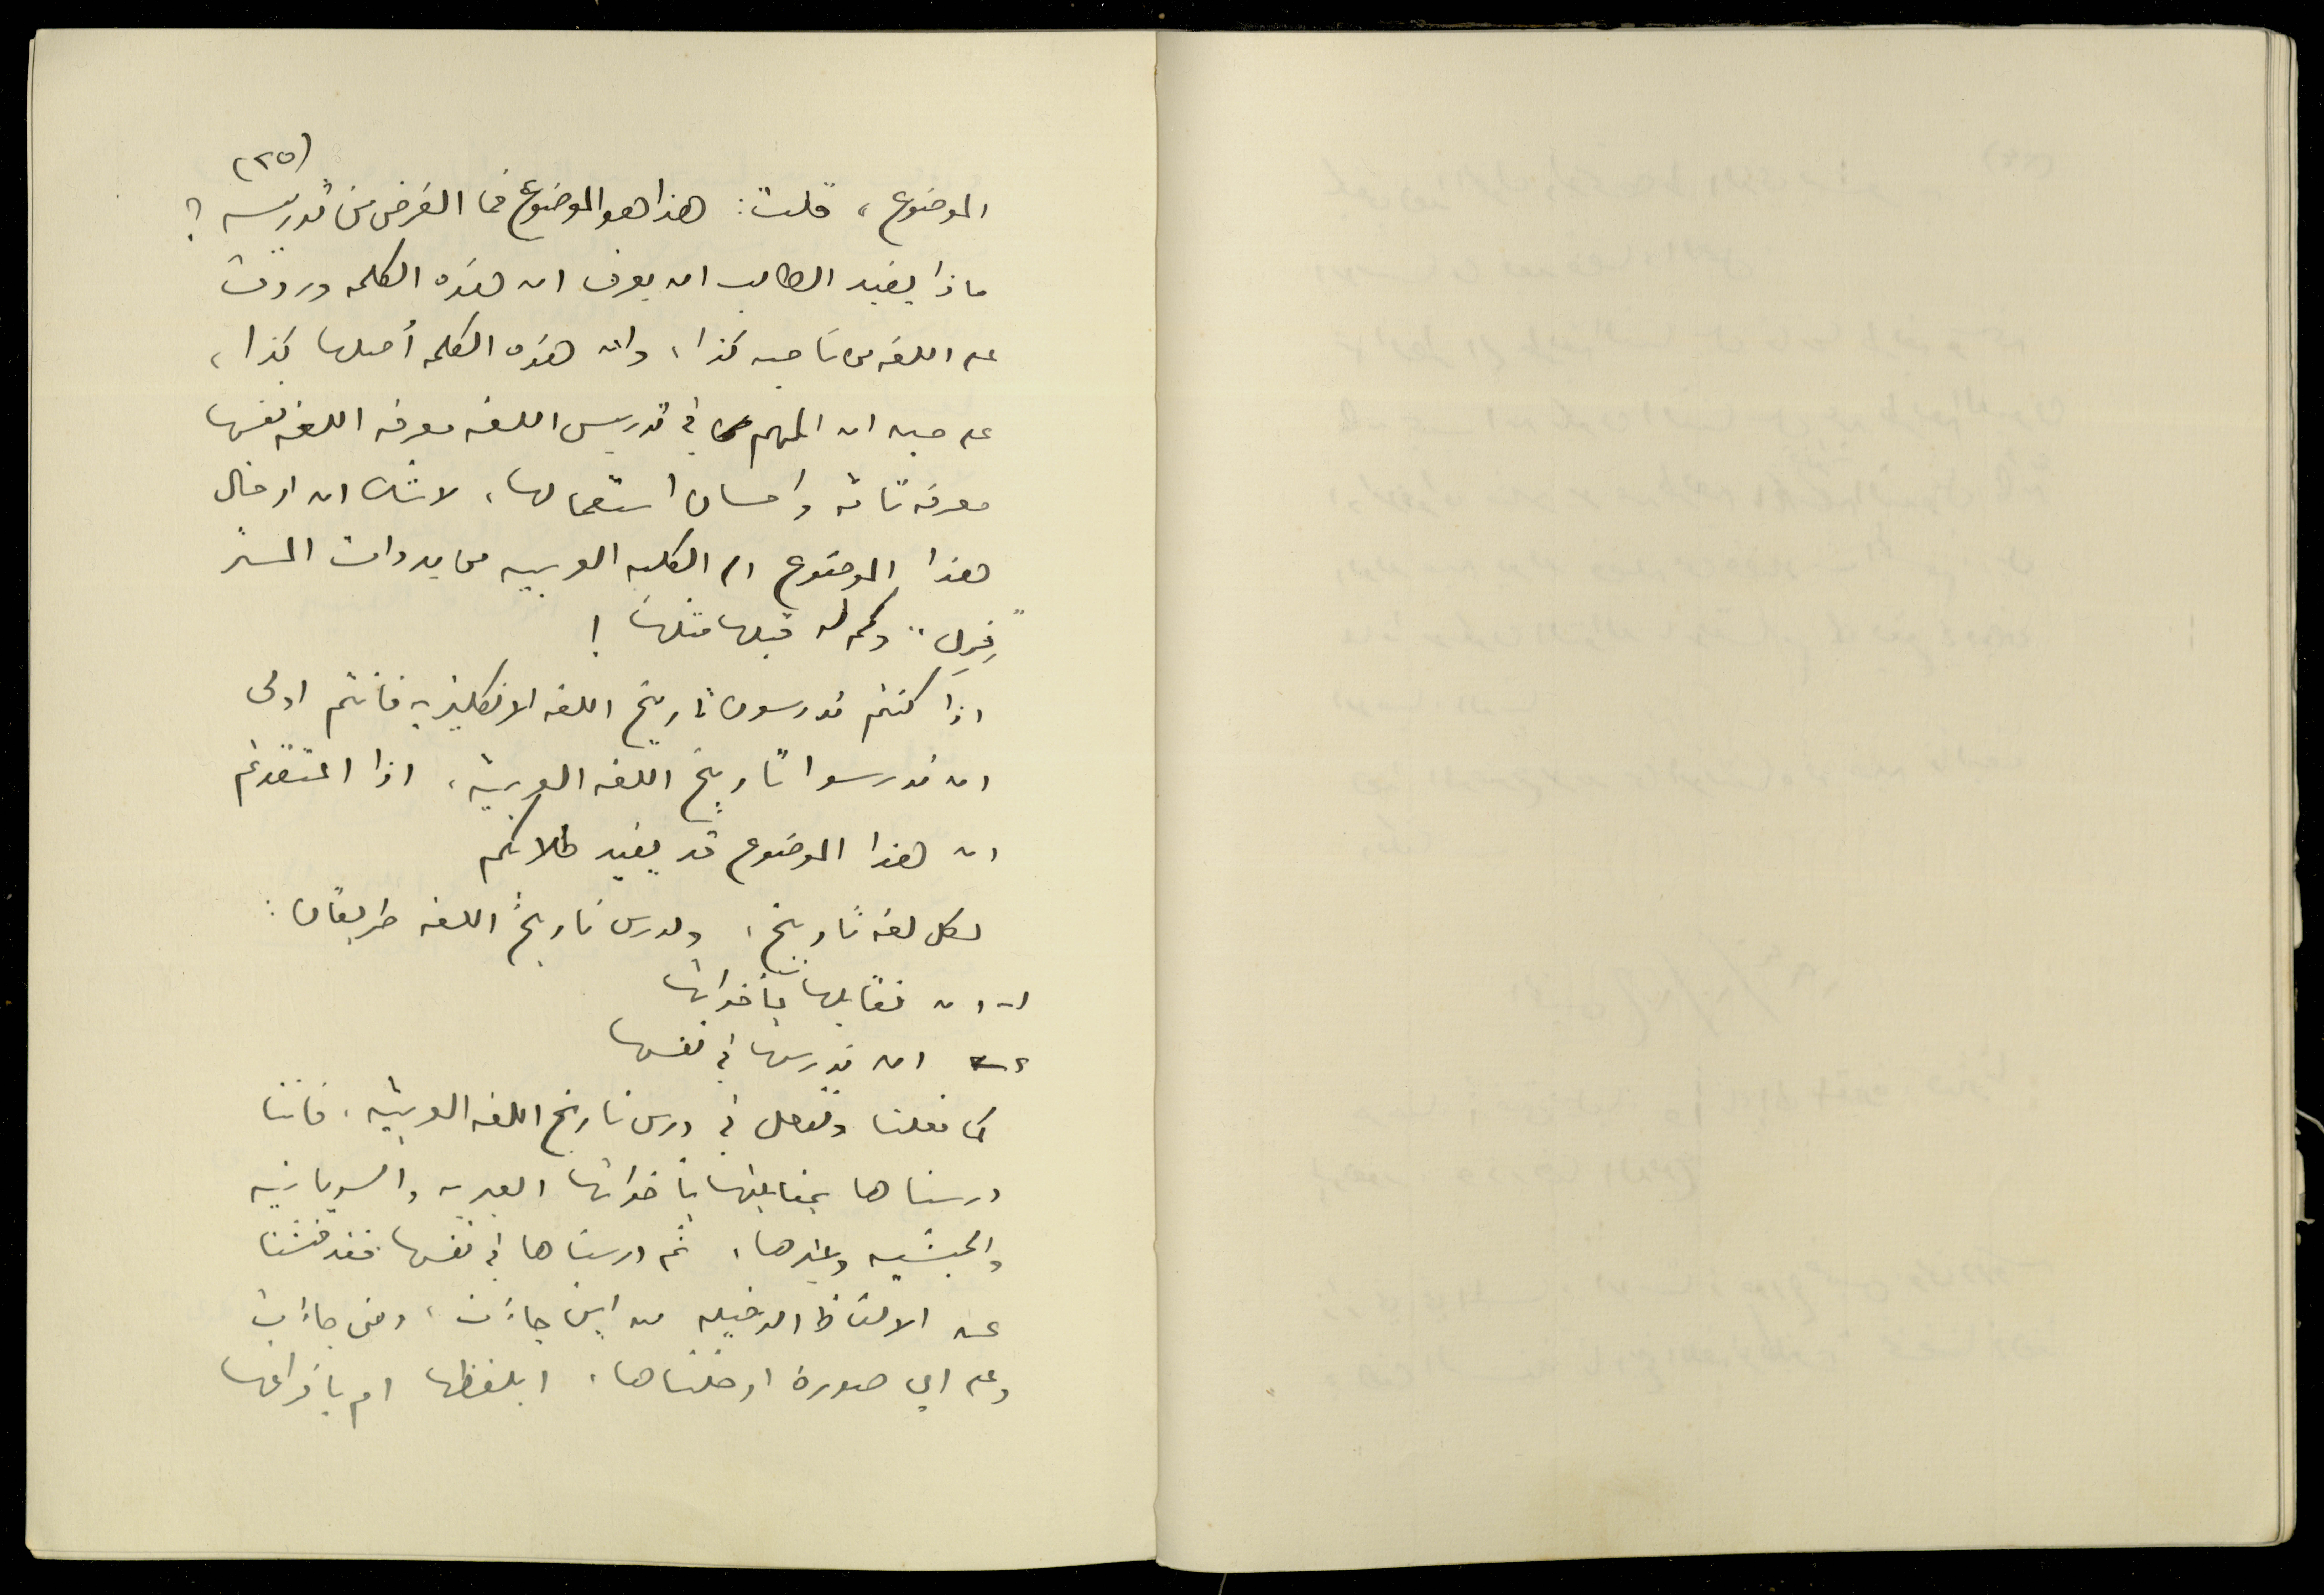 (٢٥)
الموضوع، قلت: هذا هو الموضوع فما الغرض من تدريسه؟
ماذا يفيد الطالب ان يعرف ان هذه الكلمه وردت
على اللغه من ناحيه كذا، وان هذه الكلمه أصلها كذا،
على حين ان المهم في تدريس اللغه معرفه اللغه نفسها
معرفه تامه واحسان استعمالها، لا شك ان ادخال
هذا الموضوع الى الكليه العربيه من بدوات المستر
"فِرِل" وكم له قبلها مثلها!
اذا كنتم تدرسون تاريخ اللغه الانكليزيه فانتم اولى
ان تدرسوا تاريخ اللغه العربيّه، اذا اعتقدتم
ان هذا الموضوع قد يفيد طلابكم
لكل لغه تاريخ، ولدرس تاريخ اللغه طريقان:
١- ان نقابلها باخواتها
٢- ان ندرسها في نفسها
كما فعلنا ونفعل في درس تاريخ اللغه العربيّه، فاننا
درسناها بمقابلتها باخواتها العبريه والسريانيه
والحبشيه وغيرها، ثم درسناها في نفسها فقد فتشنا
عن الالفاظ الدخيله من اين جاءت، ومتى جاءت
وعلى اي صورة ادخلناها، ابلفظها ام بافراغها